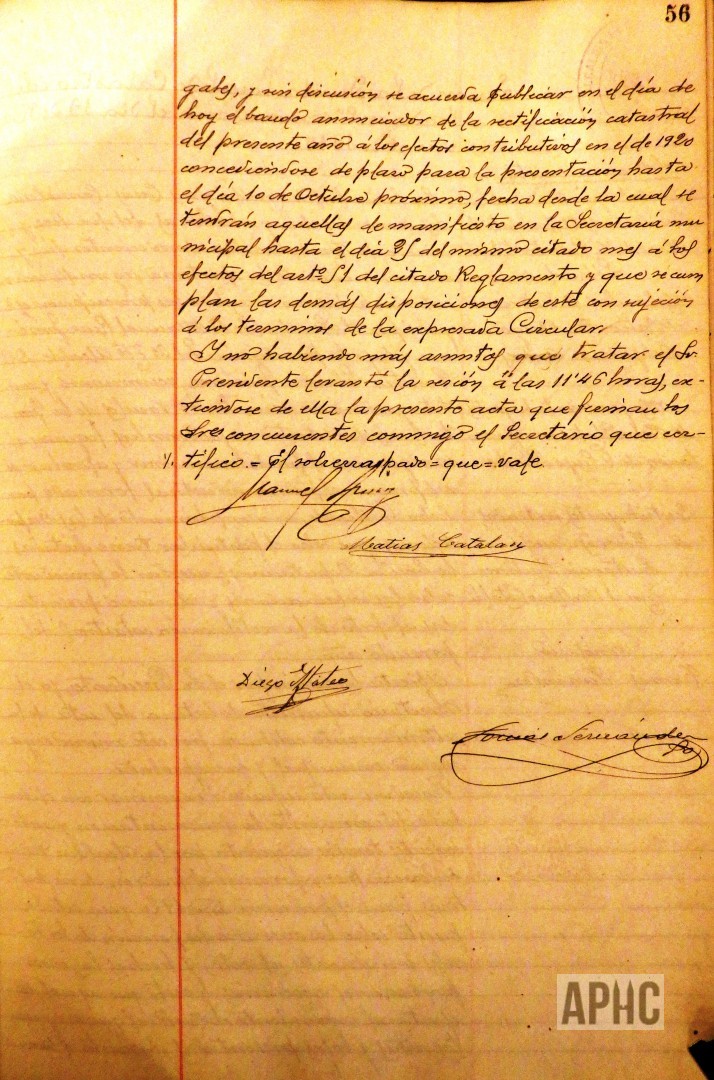 56
gales, y sin discusión se acuerda publicar en el día de
hoy el bando anunciador de la rectificación catastral
del presente año á los efectos contributivos en el de 1920
concediendose de plazo para la presentación hasta
el día 10 de Octubre próximo, fecha desde la cual se
tendrán aquellas de manifiesto en la Secretaría mu-
nicipal hasta el día 25 del mismo citado mes á los
efectos del artº 51 del citado Reglamento y que se cum
plan las demás disposiciones de este con sujeción
á los terminos de la expresada Circular.
Y no habiendo más asuntos que tratar el Sr.
Presidente levantó la sesión á las 11'46 horas, ex-
tiendose de ella la presente acta que firman los
Sres concurentes conmigo el Secretario que cer-
tifico. = El sobrerraspado = que = vale.
Manuel
Matias Catalan
Diego Mateo
Tomás Fernández
APHC